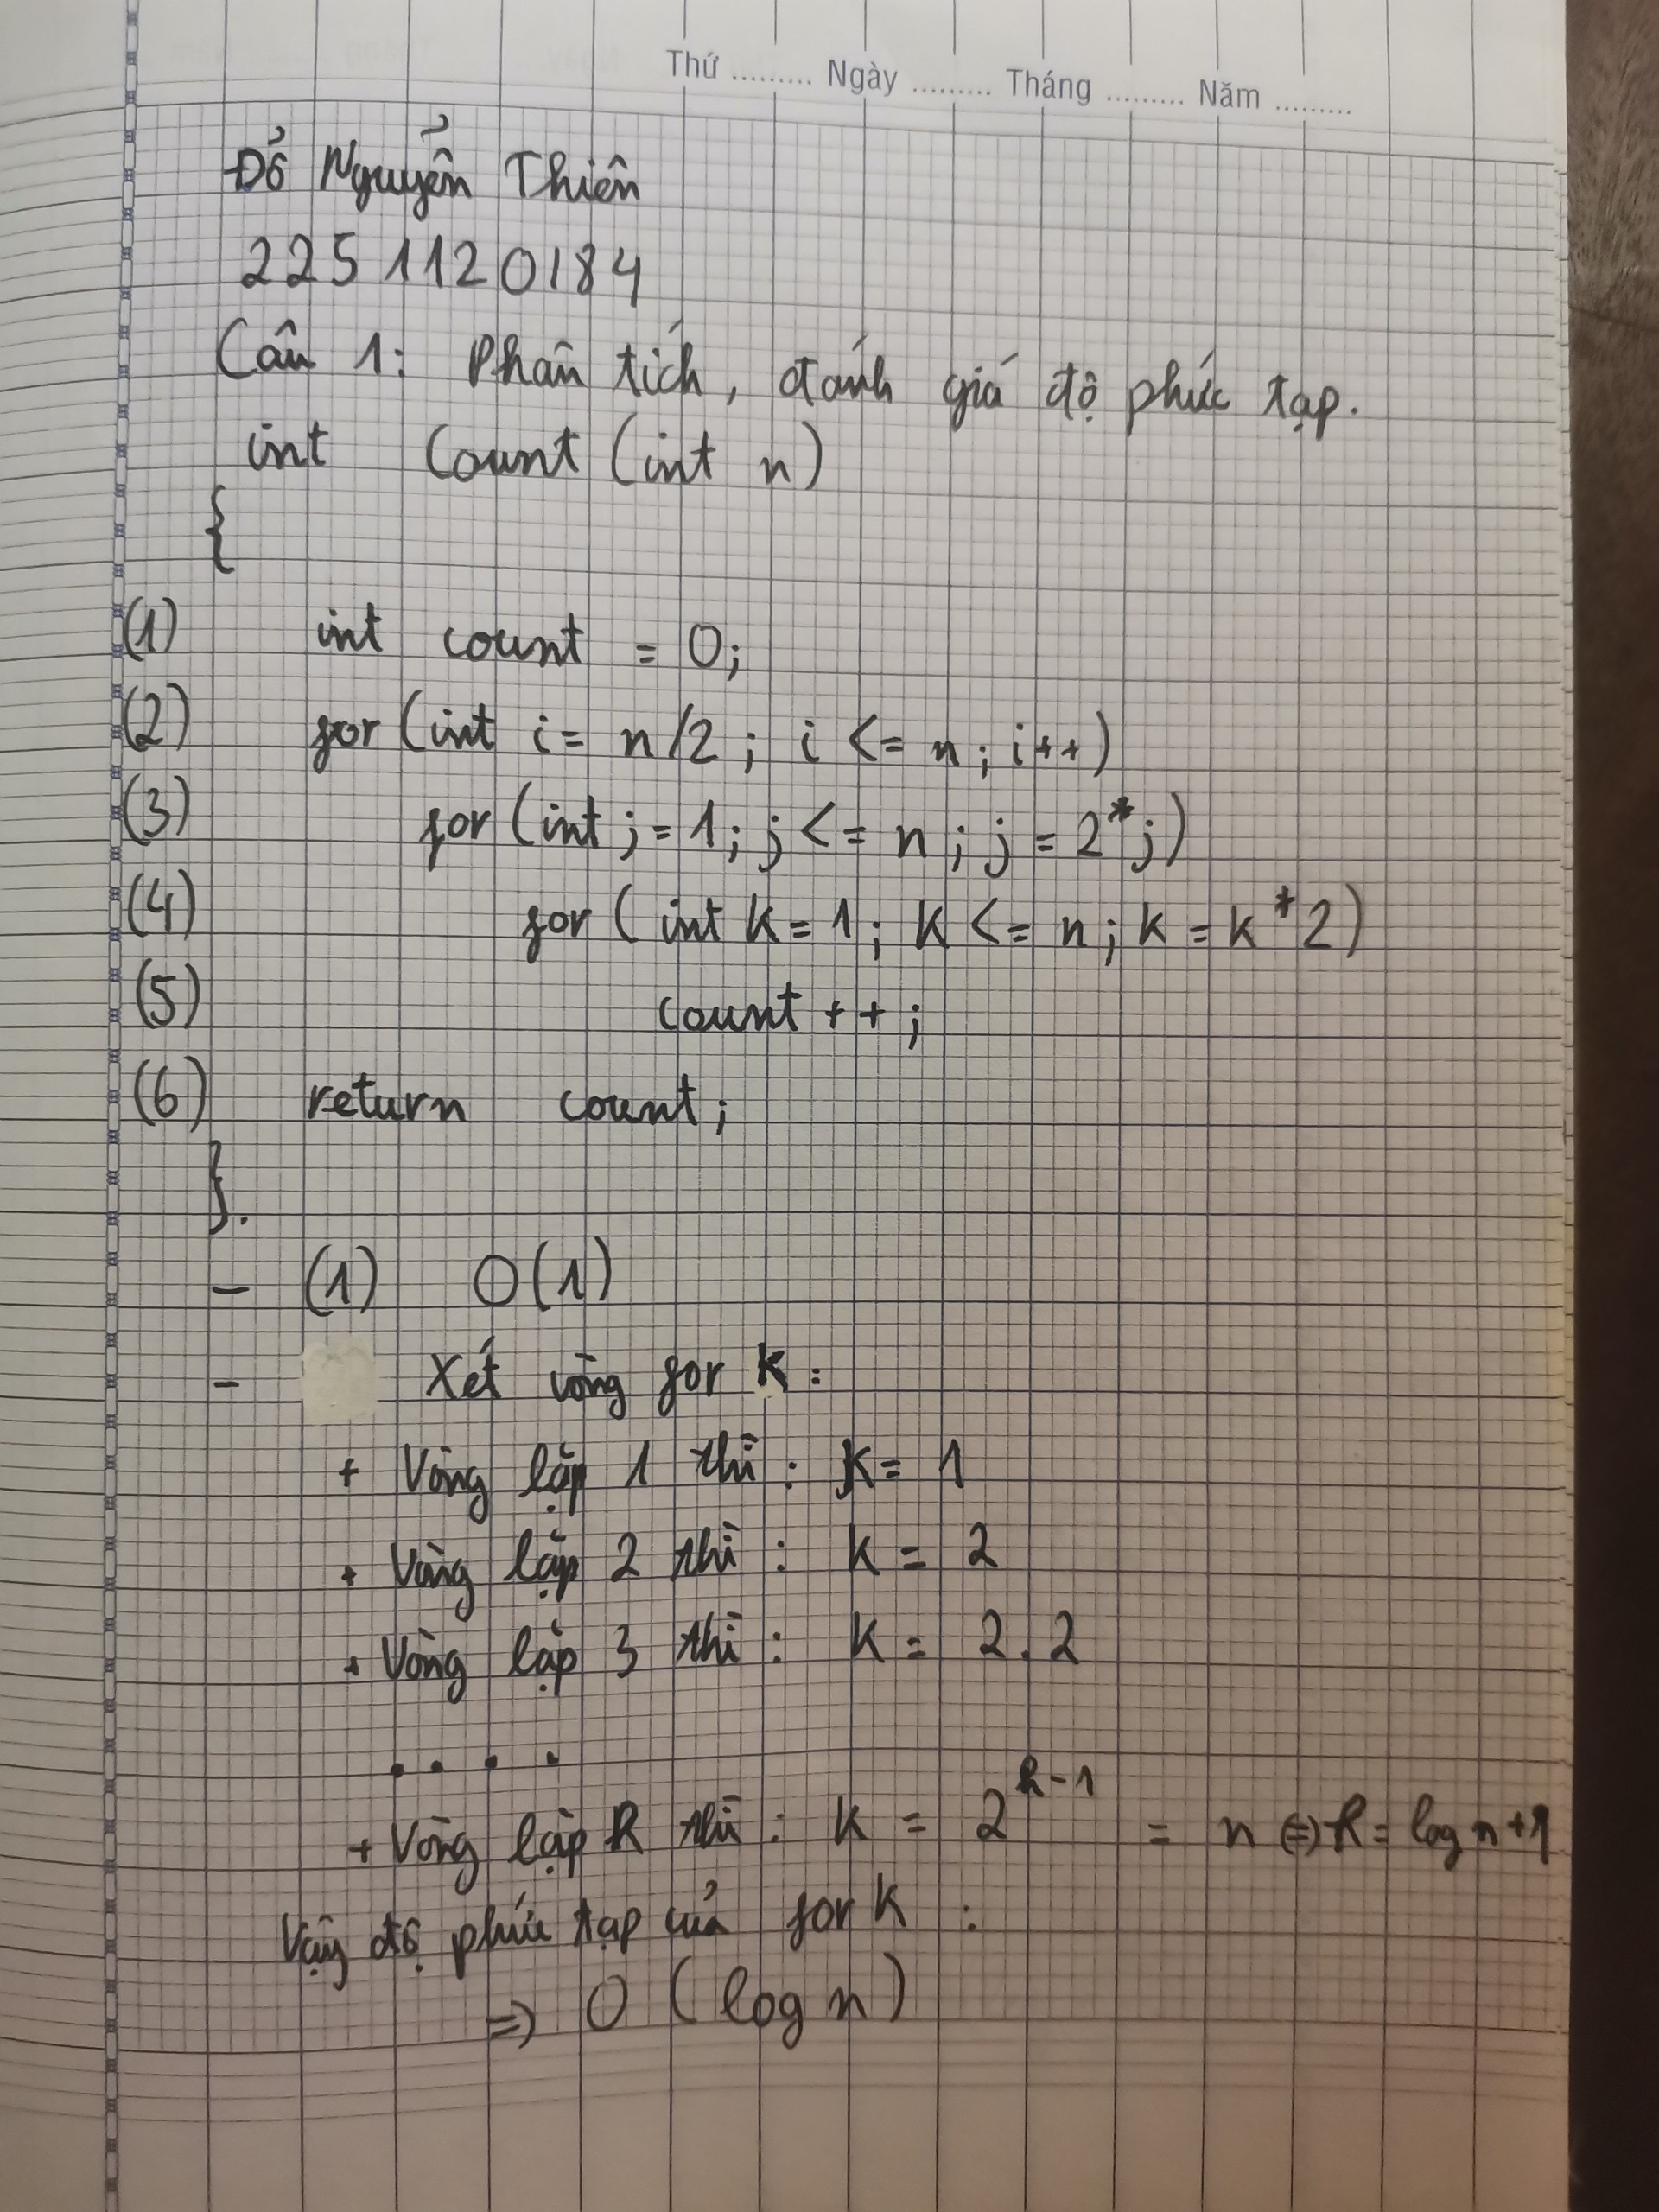 Thứ ......... Ngày ......... Tháng ......... Năm .........
Đổ Nguyển Thiên
2251120184
Câu 1: Phân tích, đánh giá độ phức tạp.
int Count (int n)
{
(1) int count = 0;
(2) for (int i = n/2 ; i <= n ; i++)
(3) for (int j = 1; j <= n ; j = 2*j)
(4) for ( int k = 1; k <= n ; k = k*2)
(5) count ++ ;
(6) return count;
}.
- (1) O(1)
- Xét vòng for k :
+ Vòng lặp 1 thì : k = 1
+ Vòng lặp 2 thì : k = 2
+ Vòng lặp 3 thì : k = 2.2
. . . .
+ Vòng lặp R thì : k = 2^(R-1) = n ⇔ R = log n + 1
Vậy độ phức tạp của for k :
=> O (log n)